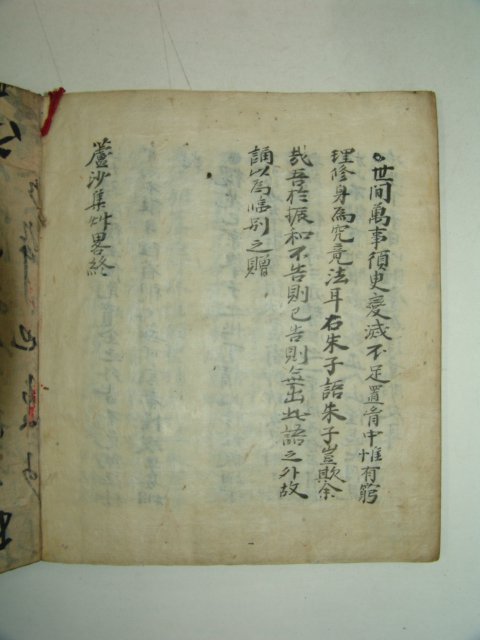 世间萬事須臾變滅不足置胷中惟有窮
理修身為究竟法耳右朱子語朱子豈欺余
㢤吾於振和不告則已告則無出此語之外故
誦以為臨别之贈
蘆沙集艸畧終